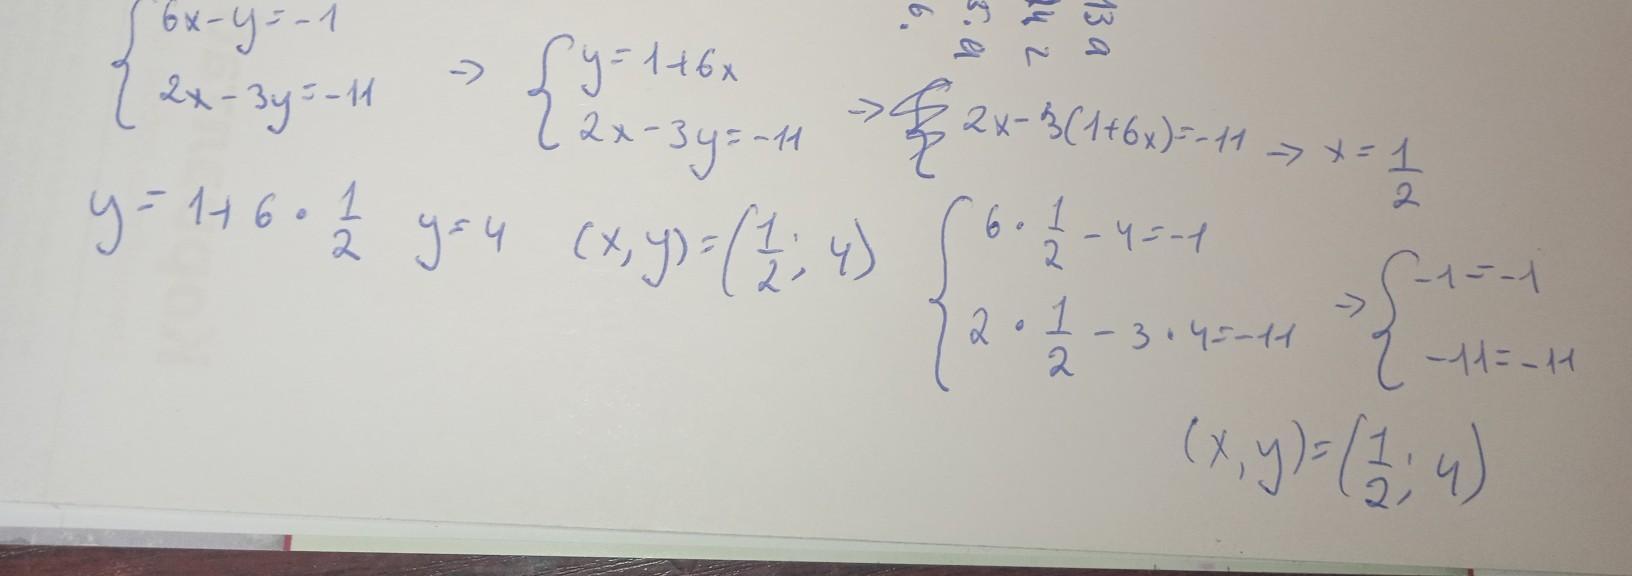 { 6x-y=-1
2x-3y=-11
→ { y=1+6x
2x-3y=-11
→ 2x-3(1+6x)=-11 → x= 1/2
y= 1+6·1/2 y=4 (x,y)=(1/2; 4)
{ 6·1/2-4=-1
2·1/2-3·4=-11
→ { -1=-1
-11=-11
(x,y)=(1/2; 4)
13 a
14 2
5. a
6.